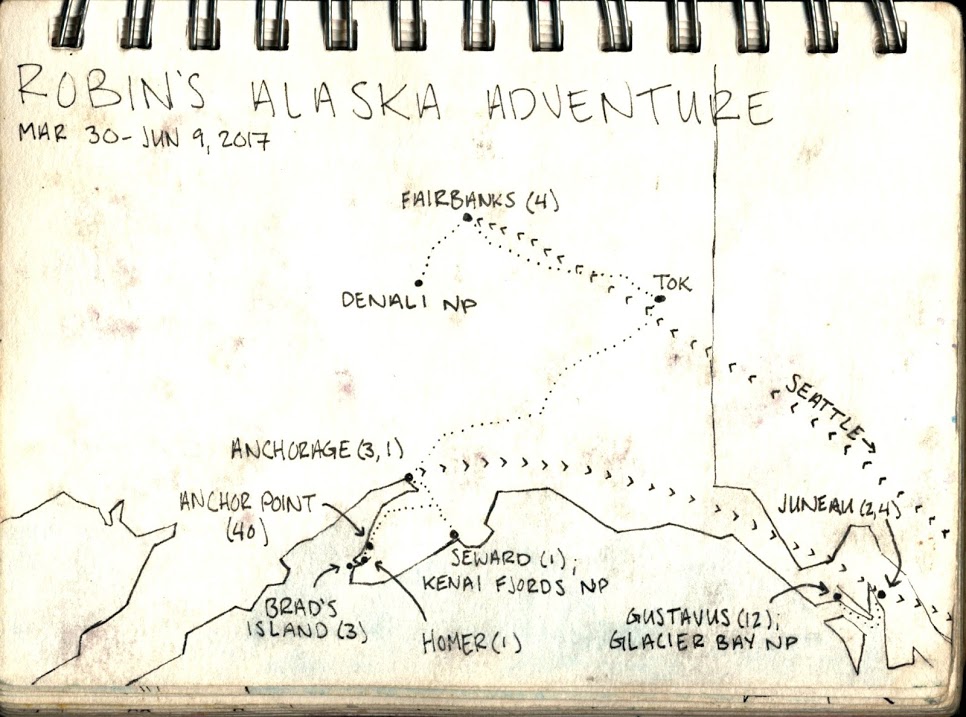 ROBIN'S ALASKA ADVENTURE
MAR 30-JUN 9, 2017
FAIRBANKS (4)
DENALI NP
TOK
SEATTLE→
ANCHORAGE (3,1)
ANCHOR POINT
(40)
JUNEAU (2,4)
SEWARD (1);
KENAI FJORDS NP
BRAD'S
ISLAND (3)
HOMER (1)
GUSTAVUS (12);
GLACIER BAY NP